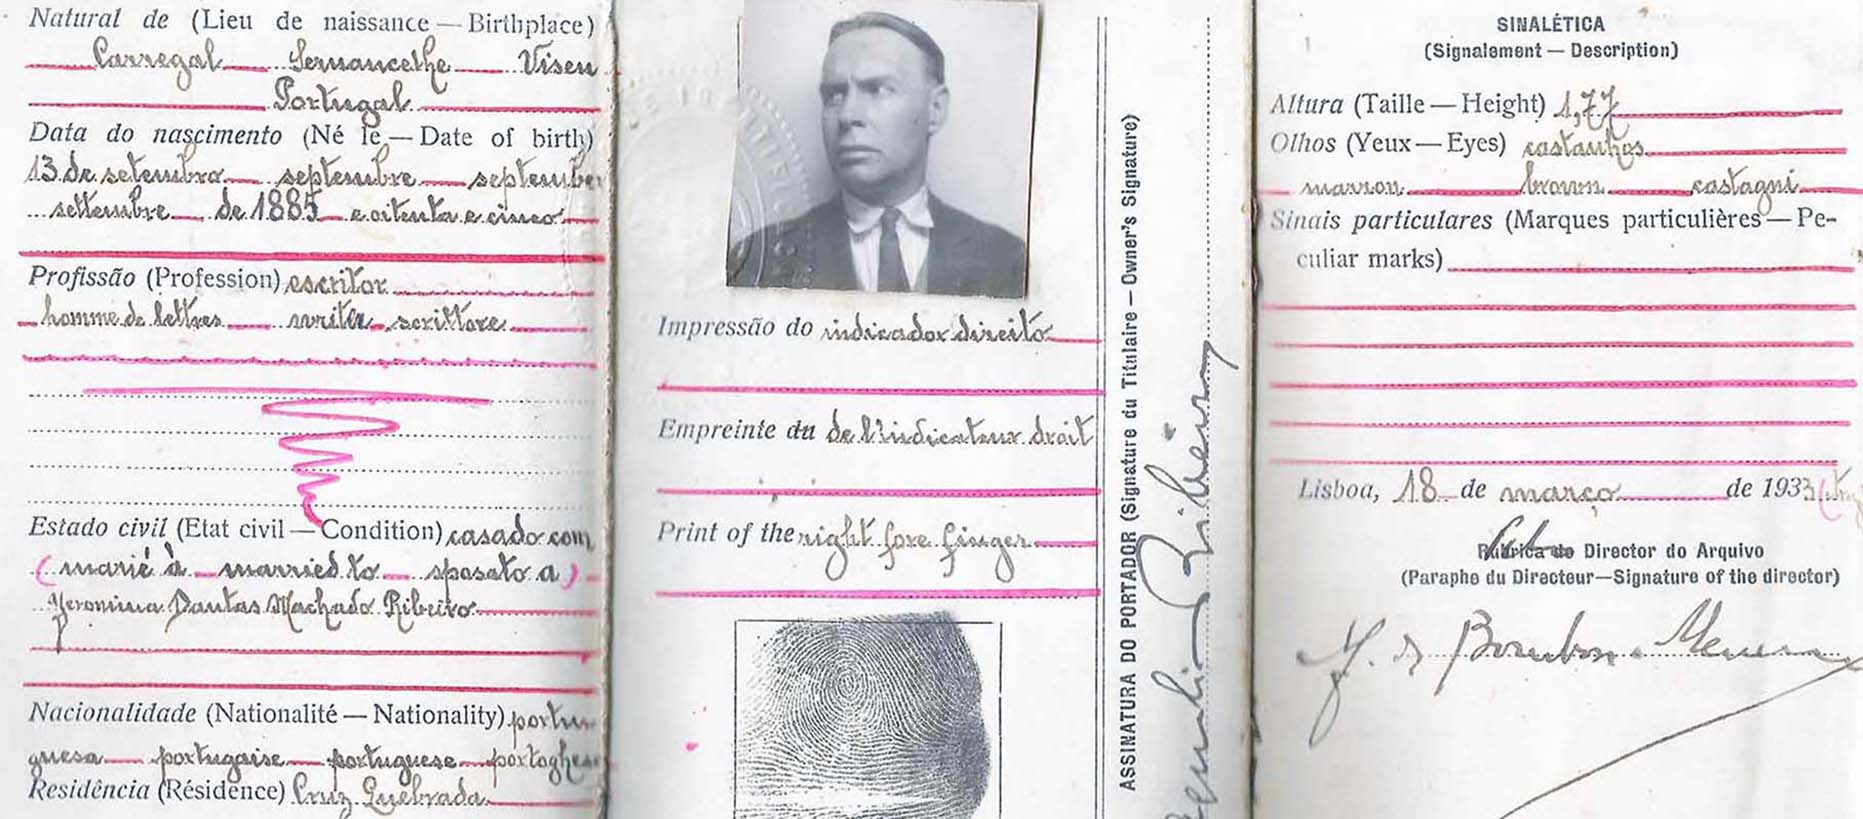 Natural de (Lieu de naissance — Birthplace)
Carregal Sernancelhe Viseu
Portugal
Data do nascimento (Né le — Date of birth)
13 de setembro septembre september
settembre de 1885 e oitenta e cinco
Profissão (Profession) escritor
homme de lettres writer scrittore
Estado civil (Etat civil — Condition) casado com
(marié à married to sposato a)
Jeronima Dantas Machado Ribeiro
Nacionalidade (Nationalité — Nationality) portu
guesa portugaise portuguese portoghese
Residência (Résidence) Cruz Quebrada
Impressão do indicador direito
Empreinte du de l'indicateur droit
Print of the right fore finger
ASSINATURA DO PORTADOR (Signature du Titulaire — Owner's Signature)
Ribeiro
SINALÉTICA
(Signalement — Description)
Altura (Taille — Height) 1,77
Olhos (Yeux — Eyes) castanhos
marron brown castagni
Sinais particulares (Marques particulières — Pe-
culiar marks)
Lisboa, 18 de março de 1933
Rubrica do Director do Arquivo
(Paraphe du Directeur—Signature of the director)